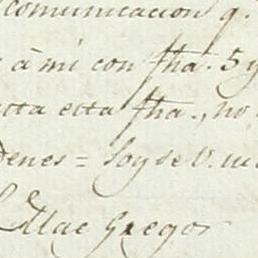 comunicacion q.
à mi con fha. 5 y
esta fha., no
denes = Soy de V. m
Mac Gregor